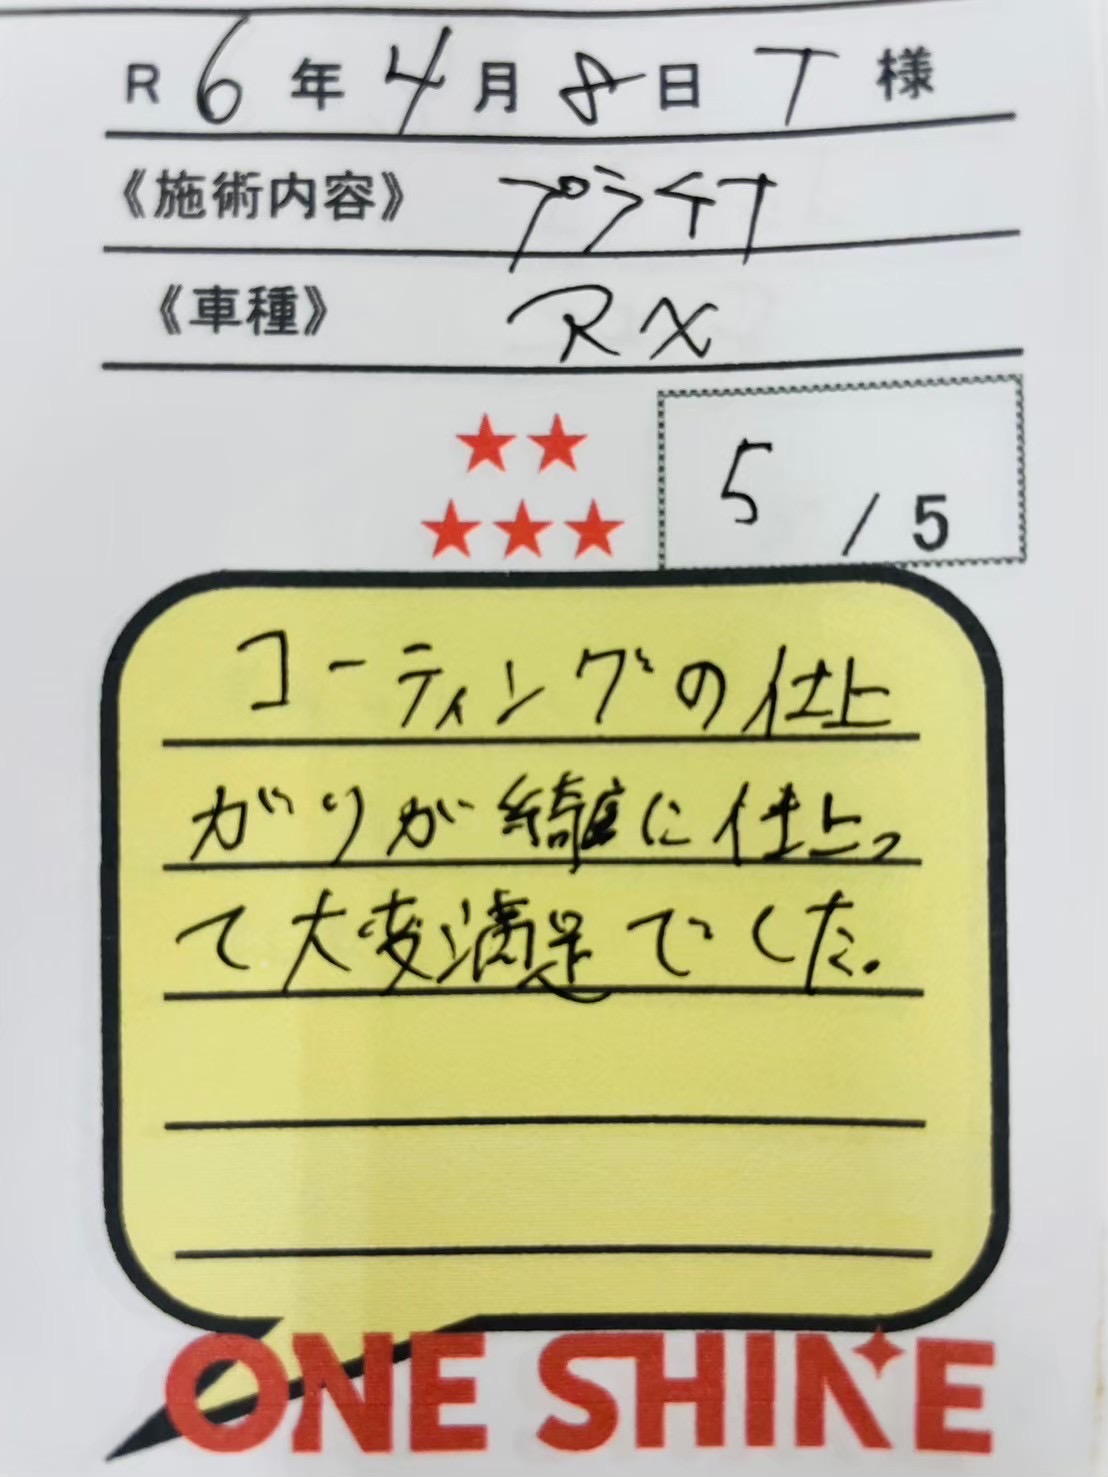 R 6 年 4 月 8 日 T 様
《施術内容》 プライナ
《車種》 RX
5 / 5
コーティングの仕上
がりが綺麗に仕上っ
て大変満足でした。
ONE SHINE